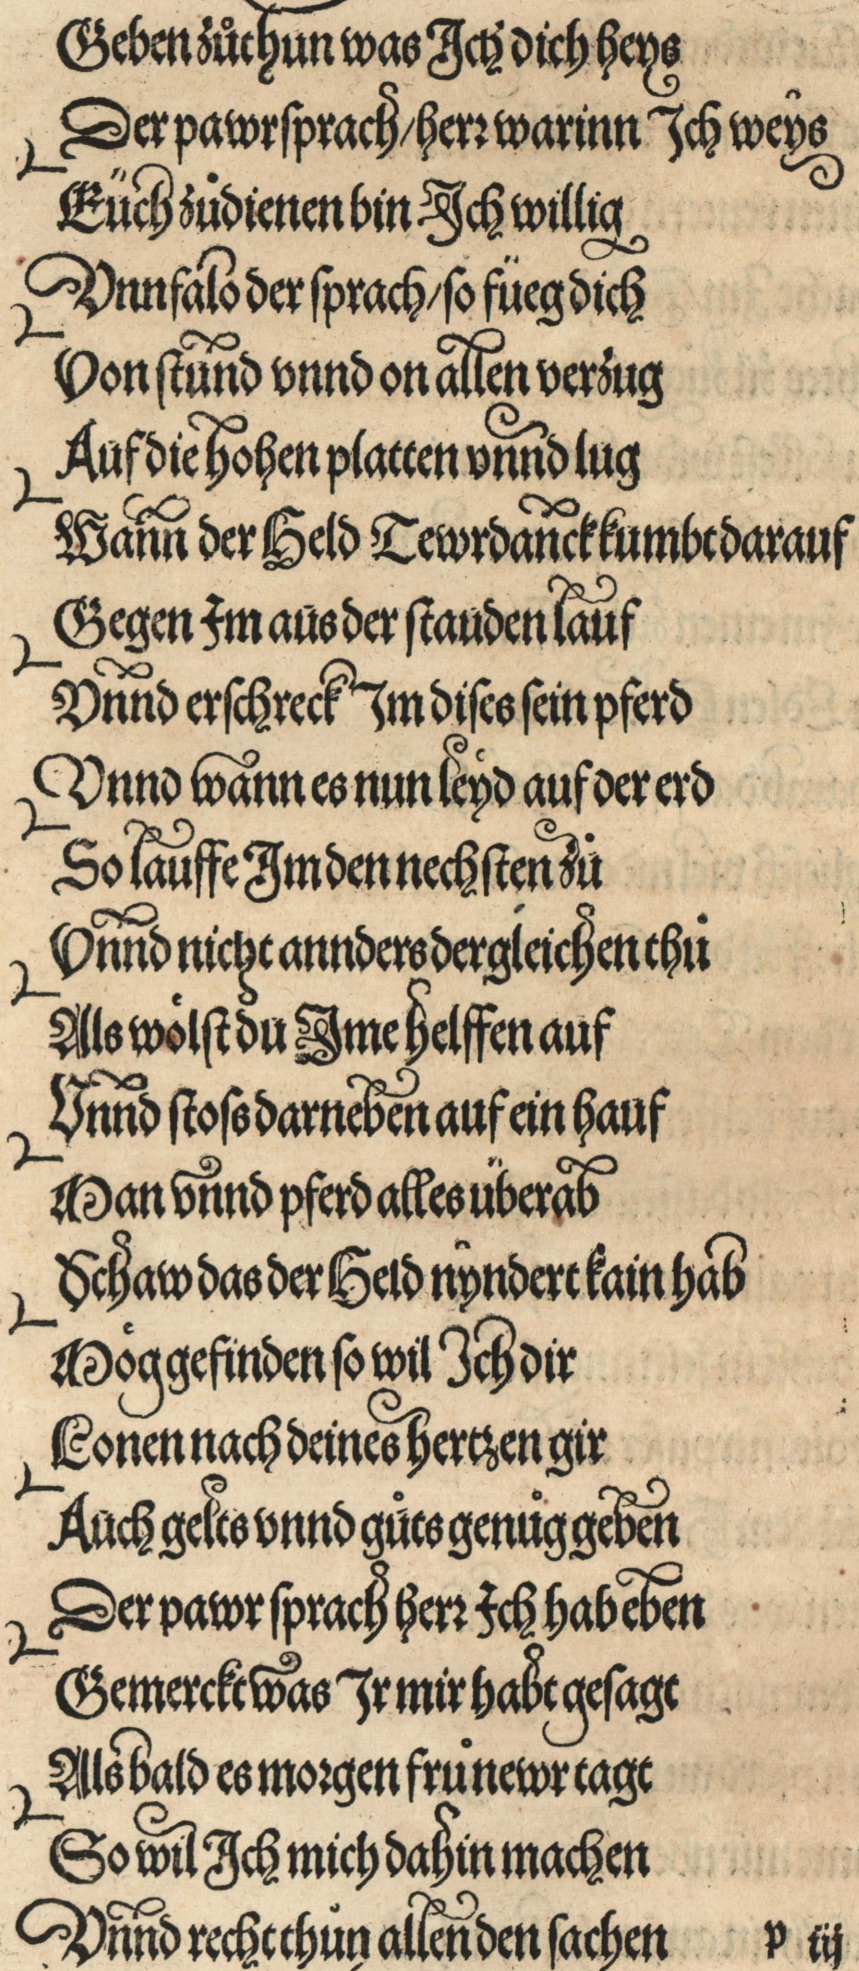 Geben zůthun was Ich dich heys
Der pawr sprach/herr warinn Ich weys
Eüch zůdienen bin Ich willig
Vnnfalo der sprach/so füeg dich
Von stund vnnd on allen verzug
Auf die hohen platten vnnd lug
Wann der Held Tewrdannck kumbt darauf
Gegen Im aus der stauden lauf
Vnnd erschreck Im dises sein pferd
Vnnd wann es nun leyd auf der erd
So lauffe Im den nechsten zů
Vnnd nicht annders dergleichen thů
Als wölst du Ime helffen auf
Vnnd stoss darneben auf ein hauf
Man vnnd pferd alles überab
Schaw das der Held nyndert kain hab
Mög gefinden so wil Ich dir
Lonen nach deines hertzen gir
Auch gelts vnnd gůts genůg geben
Der pawr sprach herr Ich hab eben
Gemerckt was Ir mir habt gesagt
Als bald es morgen frů newr tagt
So wil Ich mich dahin machen
Vnnd recht thůn allen den sachen
p iij